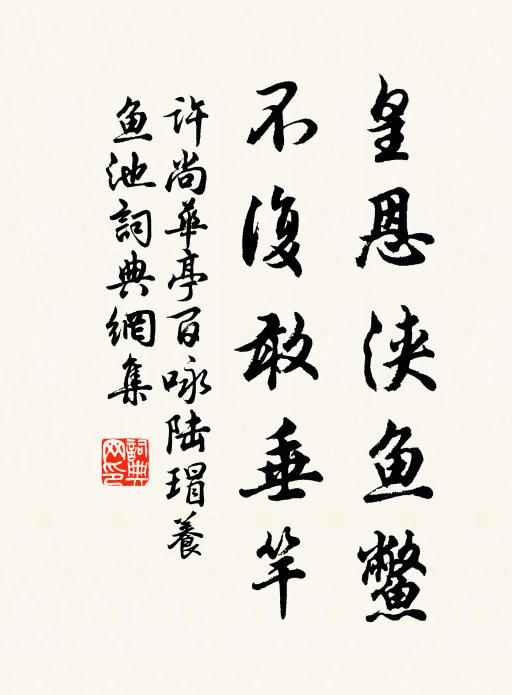 皇恩浃鱼鳖
不复敢垂竿
许尚华亭百咏陆瑁养
鱼池词典網集
詞典网印